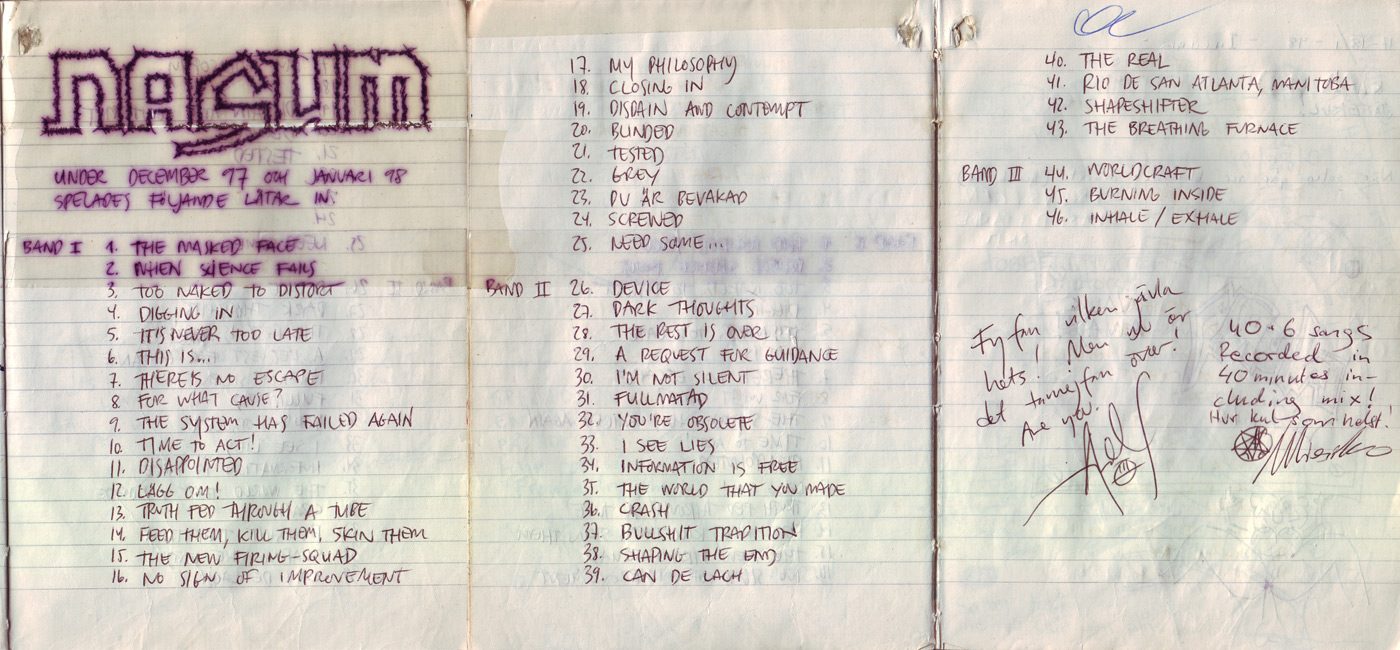 NASUM
UNDER DECEMBER 97 OCH JANUARI 98
SPELADES FÖLJANDE LÅTAR IN:
BAND I 1. THE MASKED FACE
2. WHEN SCIENCE FAILS
3. TOO NAKED TO DISTORT
4. DIGGING IN
5. IT'S NEVER TOO LATE
6. THIS IS...
7. THERE'S NO ESCAPE
8. FOR WHAT CAUSE?
9. THE SYSTEM HAS FAILED AGAIN
10. TIME TO ACT!
11. DISAPPOINTED
12. LÄGG OM!
13. TRUTH FED THROUGH A TUBE
14. FEED THEM, KILL THEM, SKIN THEM
15. THE NEW FIRING-SQUAD
16. NO SIGN OF IMPROVEMENT
17. MY PHILOSOPHY
18. CLOSING IN
19. DISDAIN AND CONTEMPT
20. BLINDED
21. TESTED
22. GREY
23. DU ÄR BEVAKAD
24. SCREWED
25. NEED SOME...
BAND II 26. DEVICE
27. DARK THOUGHTS
28. THE REST IS OVER
29. A REQUEST FOR GUIDANCE
30. I'M NOT SILENT
31. FULLMATAD
32. YOU'RE OBSOLETE
33. I SEE LIES
34. INFORMATION IS FREE
35. THE WORLD THAT YOU MADE
36. CRASH
37. BULLSHIT TRADITION
38. SHAPING THE END
39. CAN DE LACH
40. THE REAL
41. RIO DE SAN ATLANTA, MANITOBA
42. SHAPESHIFTER
43. THE BREATHING FURNACE
BAND III 44. WORLDCRAFT
45. BURNING INSIDE
46. INHALE / EXHALE
Fy fan vilken jävla
hets! Men nu är
det tamejfan över!
Are you.
40+6 songs
Recorded in
40 minutes in-
cluding mix!
Hur kul som helst.